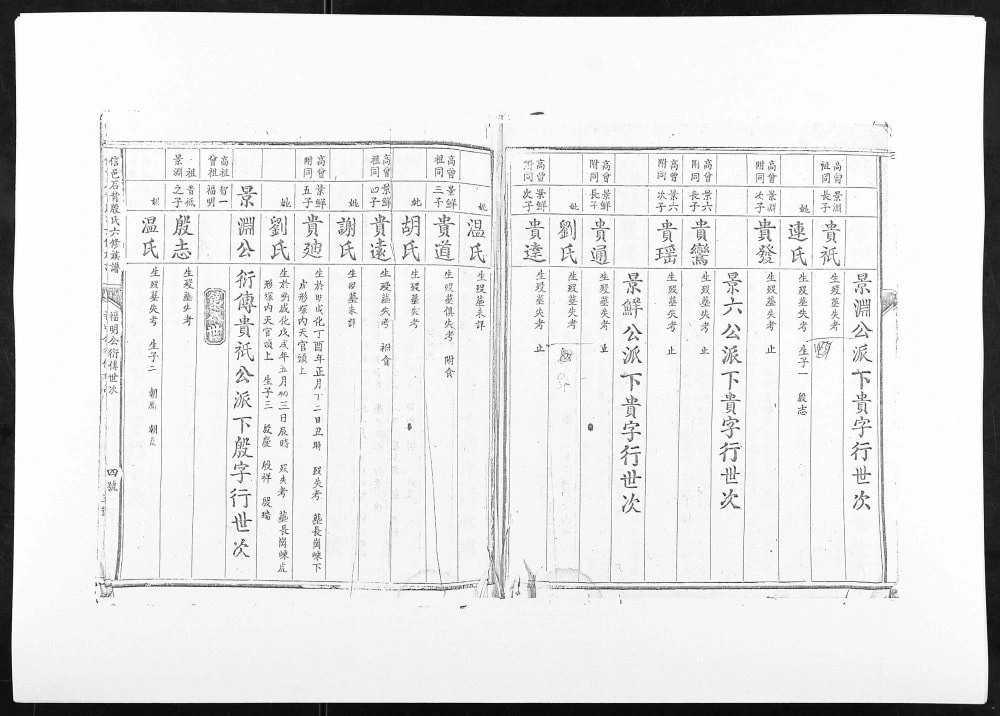 景淵公派下貴字行世次
高曾祖同 景淵長子 貴祇 生歿墓失考
妣 連氏 生歿墓失考 生子一 殷志
高曾附同 景淵次子 貴發 生歿墓失考 止
景六公派下貴字行世次
高曾附同 景六長子 貴鸞 生歿墓失考 止
高曾附同 景六次子 貴瑶 生歿墓失考 止
景鮮公派下貴字行世次
高曾附同 景鮮長子 貴通 生歿墓失考 止
妣 劉氏 生歿墓失考
高曾附同 景鮮次子 貴達 生歿墓失考 止
妣 温氏 生歿墓未詳
高曾祖同 景鮮三子 貴道 生歿墓俱失考 附食
妣 胡氏 生歿墓失考
高曾祖同 景鮮四子 貴遠 生歿墓失考 祔食
妣 謝氏 生歿墓未詳
高曾附同 景鮮五子 貴廸 生於明成化丁酉年正月十二日丑時 歿失考 葬長崗崠下
虎形塚內天官頭上
妣 劉氏 生於明成化戊戌年五月初三日辰時 歿失考 葬長崗崠虎
形塚內天官頭上 生子三 殷慶 殷祥 殷瑞
景淵公衍傳貴祇公派下殷字行世次
高祖智一 曾祖福明 祖景淵 貴祇之子 殷志 生歿墓失考
妣 温氏 生歿墓失考 生子二 朝鳳
信邑石背殷氏六修族譜
福明公衍傳世次
四號